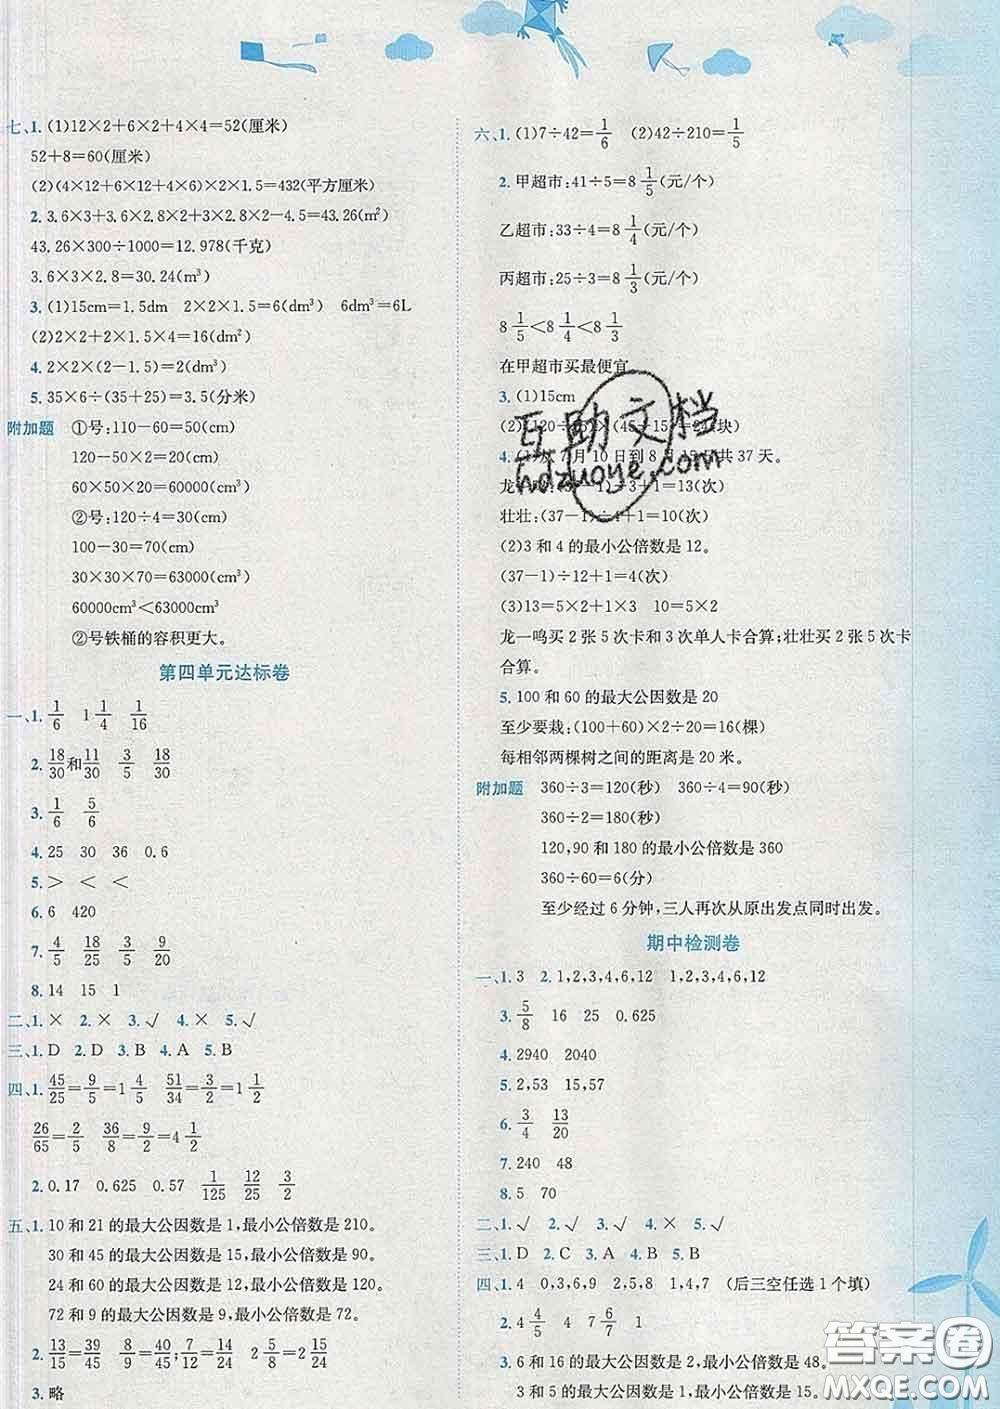 七、1. (1)12×2+6×2+4×4=52(厘米)
52+8=60(厘米)
(2)(4×12+6×12+4×6)×2×1.5=432(平方厘米)
2. 3.6×3+3.6×2.8×2+3×2.8×2-4.5=43.26(m²)
43.26×300÷1000=12.978(千克)
3.6×3×2.8=30.24(m³)
3. (1)15cm=1.5dm 2×2×1.5=6(dm³) 6dm³=6L
(2)2×2+2×1.5×4=16(dm²)
4. 2×2×(2-1.5)=2(dm³)
5. 35×6÷(35+25)=3.5(分米)
附加题 ①号:110-60=50(cm)
120-50×2=20(cm)
60×50×20=60000(cm³)
②号:120÷4=30(cm)
100-30=70(cm)
30×30×70=63000(cm³)
60000cm³<63000cm³
②号铁桶的容积更大。
第四单元达标卷
一、1. 1/6 1 1/4 1/16
2. 18/30和11/30 3/5 18/30
3. 1/6 5/6
4. 25 30 36 0.6
5. > < <
6. 6 420
7. 4/5 18/25 3/5 9/20
8. 14 15 1
二、1. × 2. × 3. √ 4. × 5. √
三、1. D 2. D 3. B 4. A 5. B
四、1. 45/25=9/5=1 4/5 51/34=3/2=1 1/2
26/65=2/5 36/8=9/2=4 1/2
2. 0.17 0.625 0.57 1/125 12/25 3/2
五、1. 10 和 21 的最大公因数是 1,最小公倍数是 210。
30 和 45 的最大公因数是 15,最小公倍数是 90。
24 和 60 的最大公因数是 12,最小公倍数是 120。
72 和 9 的最大公因数是 9,最小公倍数是 72。
2. 13/15=39/45 8/9=40/45;12/15=4/5 2 5/8=2 5/8
3. 略
六、1. (1)7÷42=1/6 (2)42÷210=1/5
2. 甲超市:41÷5=8 1/5(元/个)
乙超市:33÷4=8 1/4(元/个)
丙超市:25÷3=8 1/3(元/个)
8 1/5<8 1/4<8 1/3
在甲超市买最便宜
3. (1)15cm
4. (1)从 7 月 10 日到 8 月 15 日共 37 天。
壮壮:(37-1)÷4+1=10(次)
(2)3 和 4 的最小公倍数是 12。
(37-1)÷12+1=4(次)
(3)13=5×2+1×3 10=5×2
龙一鸣买 2 张 5 次卡和 3 次单人卡合算;壮壮买 2 张 5 次卡
合算。
5. 100 和 60 的最大公因数是 20
至少要栽:(100+60)×2÷20=16(棵)
每相邻两棵树之间的距离是 20 米。
附加题 360÷3=120(秒) 360÷4=90(秒)
360÷2=180(秒)
120,90 和 180 的最小公倍数是 360
360÷60=6(分)
至少经过 6 分钟,三人再次从原出发点同时出发。
期中检测卷
一、1. 3 2. 1,2,3,4,6,12 1,2,3,4,6,12
3. 5/8 16 25 0.625
4. 2940 2040
5. 2,53 15,57
6. 3/4 13/20
7. 240 48
8. 5 70
二、1. √ 2. √ 3. √ 4. √ 5. √
三、1. D 2. C 3. A 4. B 5. D
四、1. 4 0,3,6,9 2,5,8 1,4,7 (后三空任选 1 个填)
2. 4 4/5 4 7 6/7 1
3. 6 和 16 的最大公因数是 2,最小公倍数是 48。
3 和 5 的最大公因数是 1,最小公倍数是 15。
互助文档
hdzuoye.com
答案圈
MXQE.COM